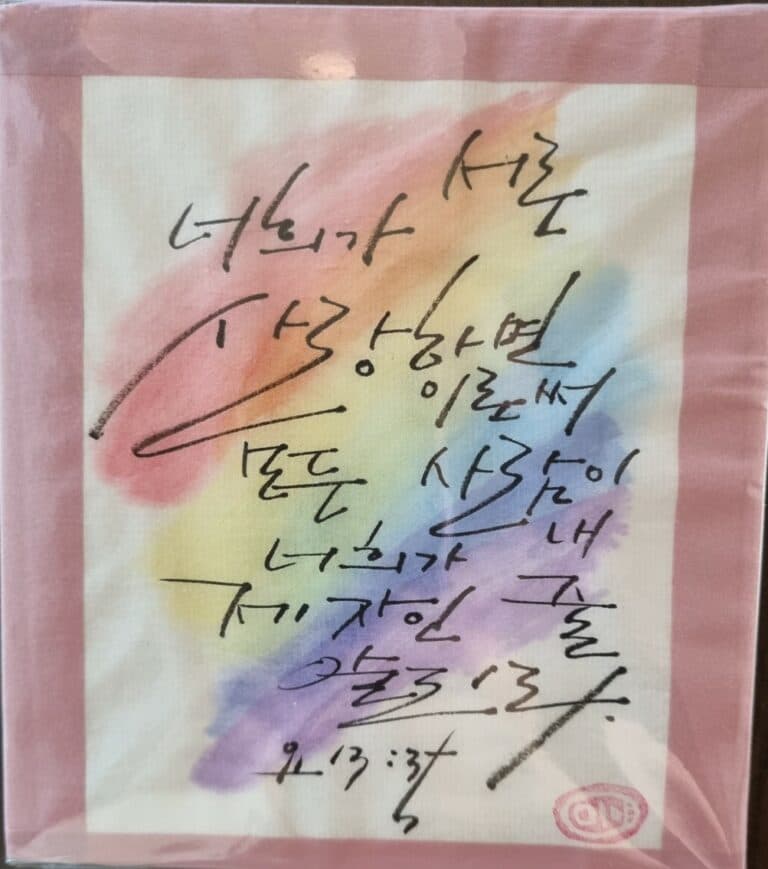 너희가 서로
사랑하면
이로써
모든 사람이
너희가 내
제자인 줄
알리라.
요 13:35